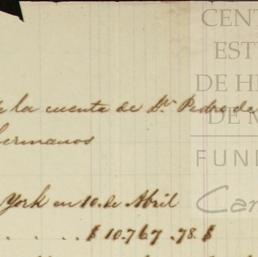 CENT
ESTU
DE H
DE M
FUND
Car
la cuenta de Dn. Pedro de
hermanos
York en 10. de Abril
. . . . . $ 10.767 .78. $